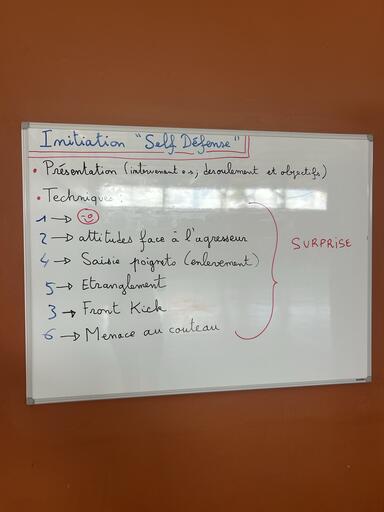 Initiation "Self Défense"
• Présentation (intervenant.e.s, déroulement et objectifs)
• Techniques :
1 →
2 → attitudes face à l'agresseur
4 → Saisie poignets (enlèvement)
5 → Etranglement
3 → Front Kick
6 → Menace au couteau
SURPRISE